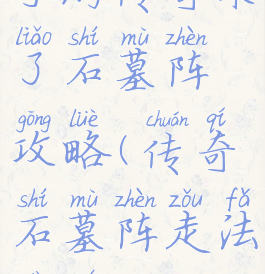 liǎo shí mù zhèn
了石墓阵
gōng lüè chuán qí
攻略(传奇
shí mù zhèn zǒu fǎ
石墓阵走法